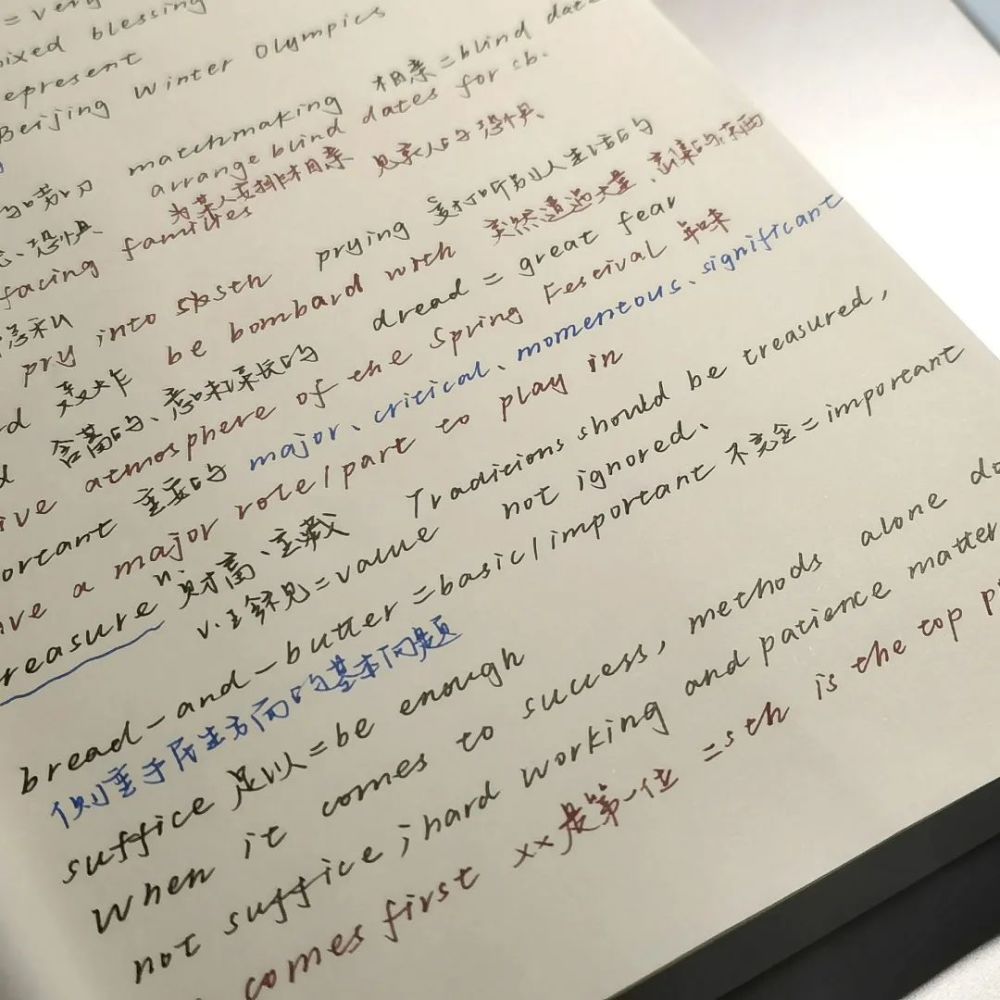 = very
mixed blessing
represent
Beijing Winter Olympics
matchmaking 相亲=blind date
arrange blind dates for sb.
为某人安排相亲 见家人的恐惧
恐惧
facing families
prying 爱打听别人生活的
pry into sth
be bombard with 突然遭遇大量
轰炸 dread = great fear
含蓄的、意味深长的
ive atmosphere of the Spring Festival 年味
ortant 主要的 major、critical、momentous、significant
ave a major role/part to play in
treasure n. 财富、 Traditions should be treasured,
v. 珍视=value not ignored.
bread-and-butter=basic/important 不完全=important
侧重于民生方面的基本问题
suffice 足以=be enough
When it comes to success, methods alone do
not suffice; hard working and patience matter
comes first xx是第一位 =sth is the top p